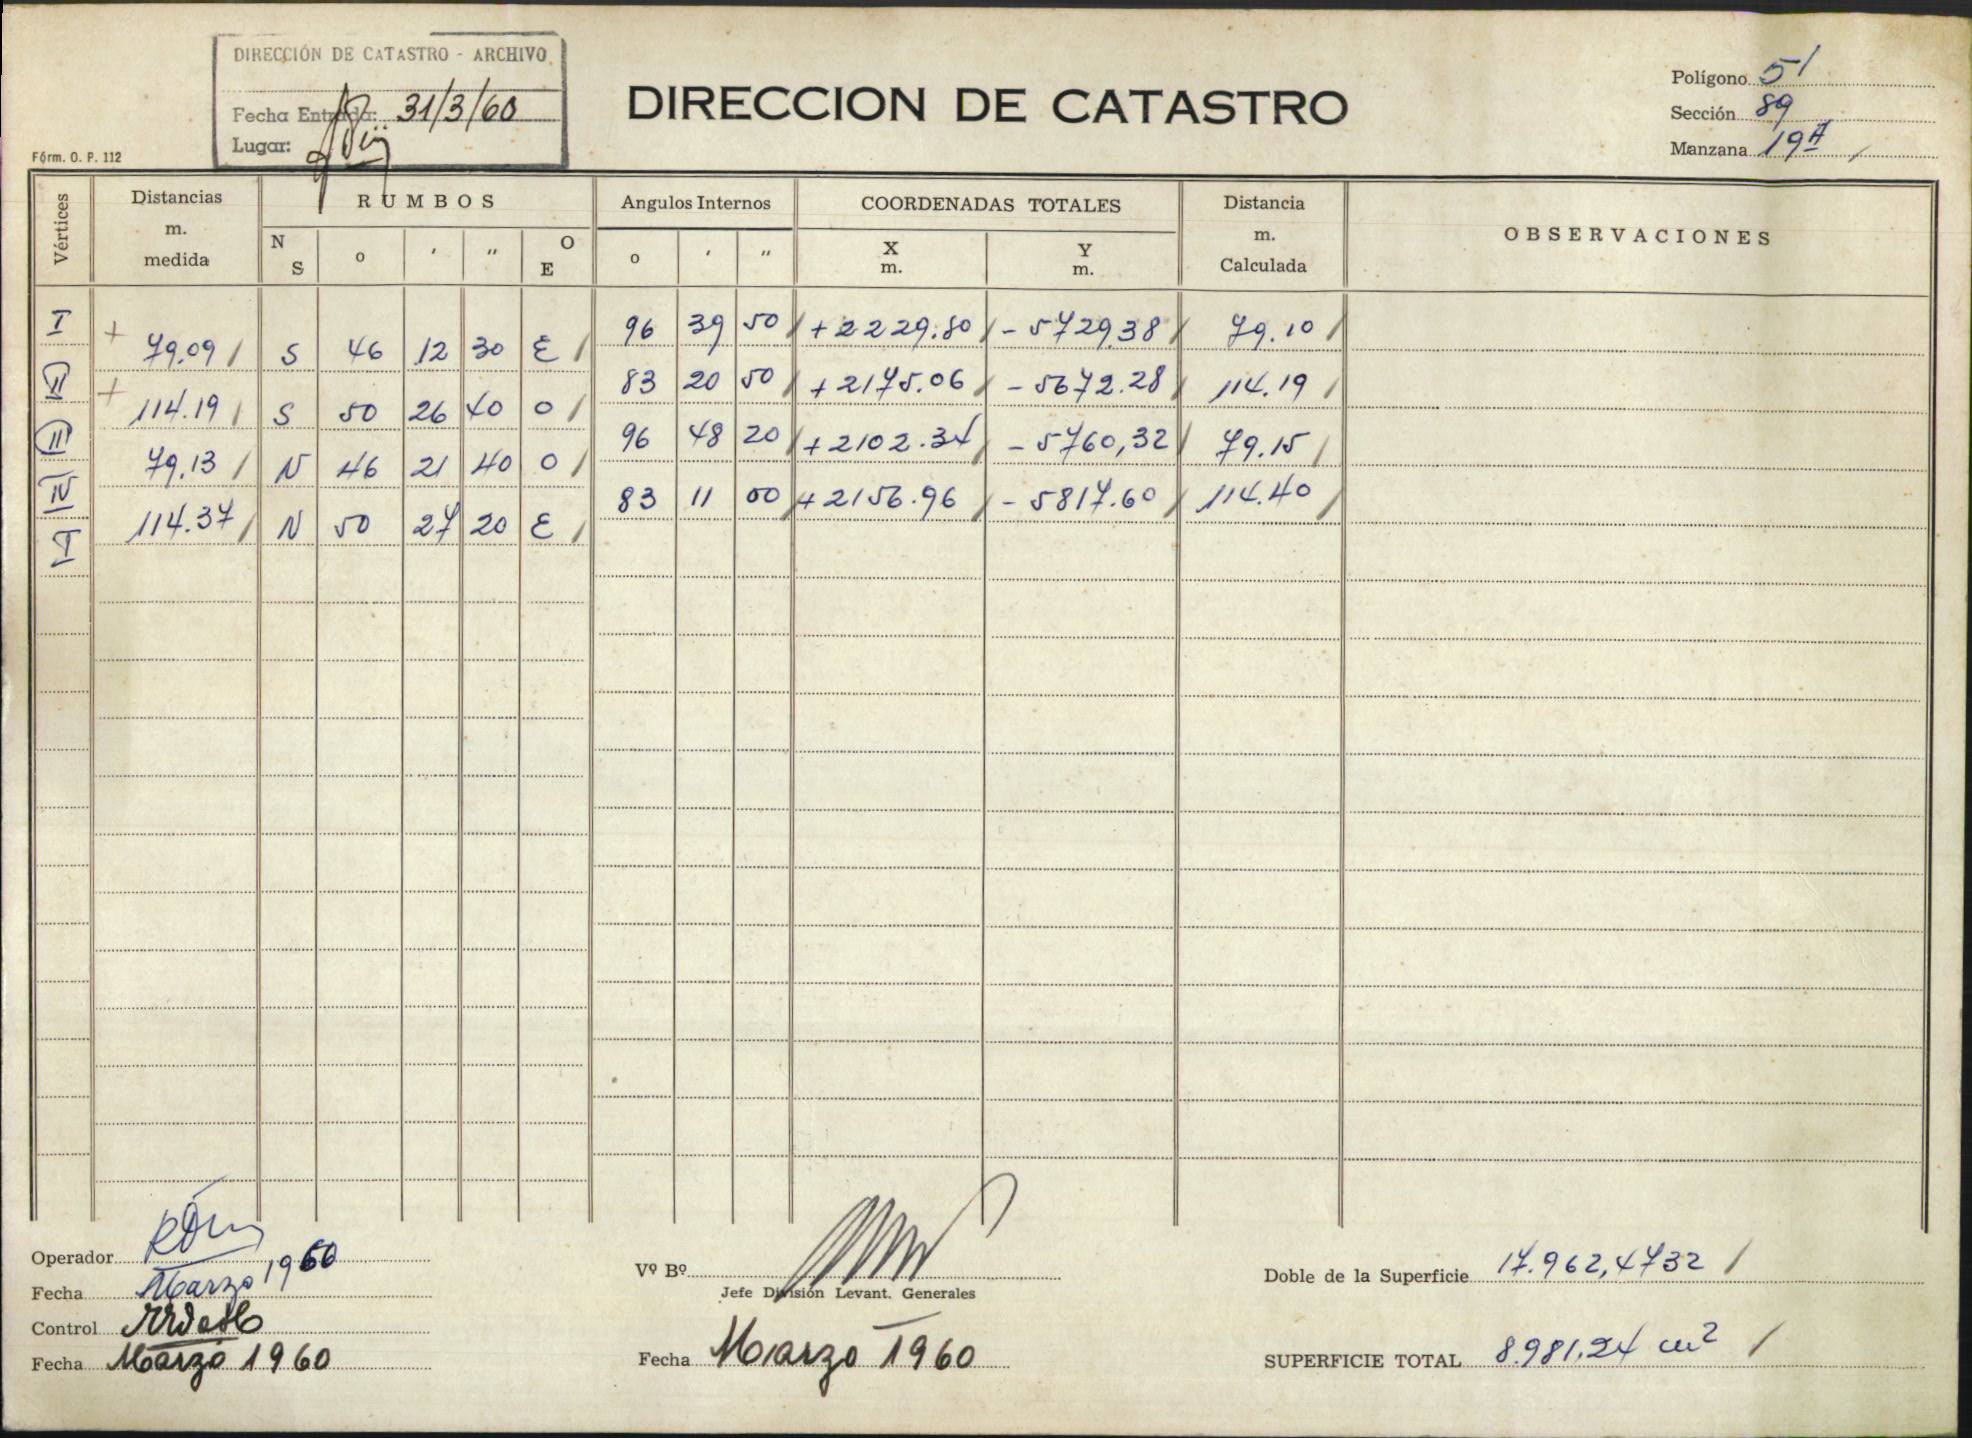 DIRECCIÓN DE CATASTRO - ARCHIVO
Fecha Entrada: 31/3/60
Lugar:
Fórm. O. P. 112
DIRECCION DE CATASTRO
Polígono 51
Sección 89
Manzana 19A
Vértices
Distancias m. medida
RUMBOS
N S o ' " O E
Angulos Internos
o ' "
COORDENADAS TOTALES
X m. Y m.
Distancia m. Calculada
OBSERVACIONES
I 96 39 50 +2229.80 -5729.38 79.10
79.09 S 46 12 30 E
II 83 20 50 +2175.06 -5672.28 114.19
114.19 S 50 26 40 O
III 96 48 20 +2102.34 -5760,32 79.15
79.13 N 46 21 40 O
IV 83 11 00 +2156.96 -5817.60 114.40
114.37 N 50 27 20 E
I
Operador
Fecha Marzo 1960
Control
Fecha Marzo 1960
Vº Bº
Jefe División Levant. Generales
Fecha Marzo 1960
Doble de la Superficie 17.962,4732
SUPERFICIE TOTAL 8.981.24 m2